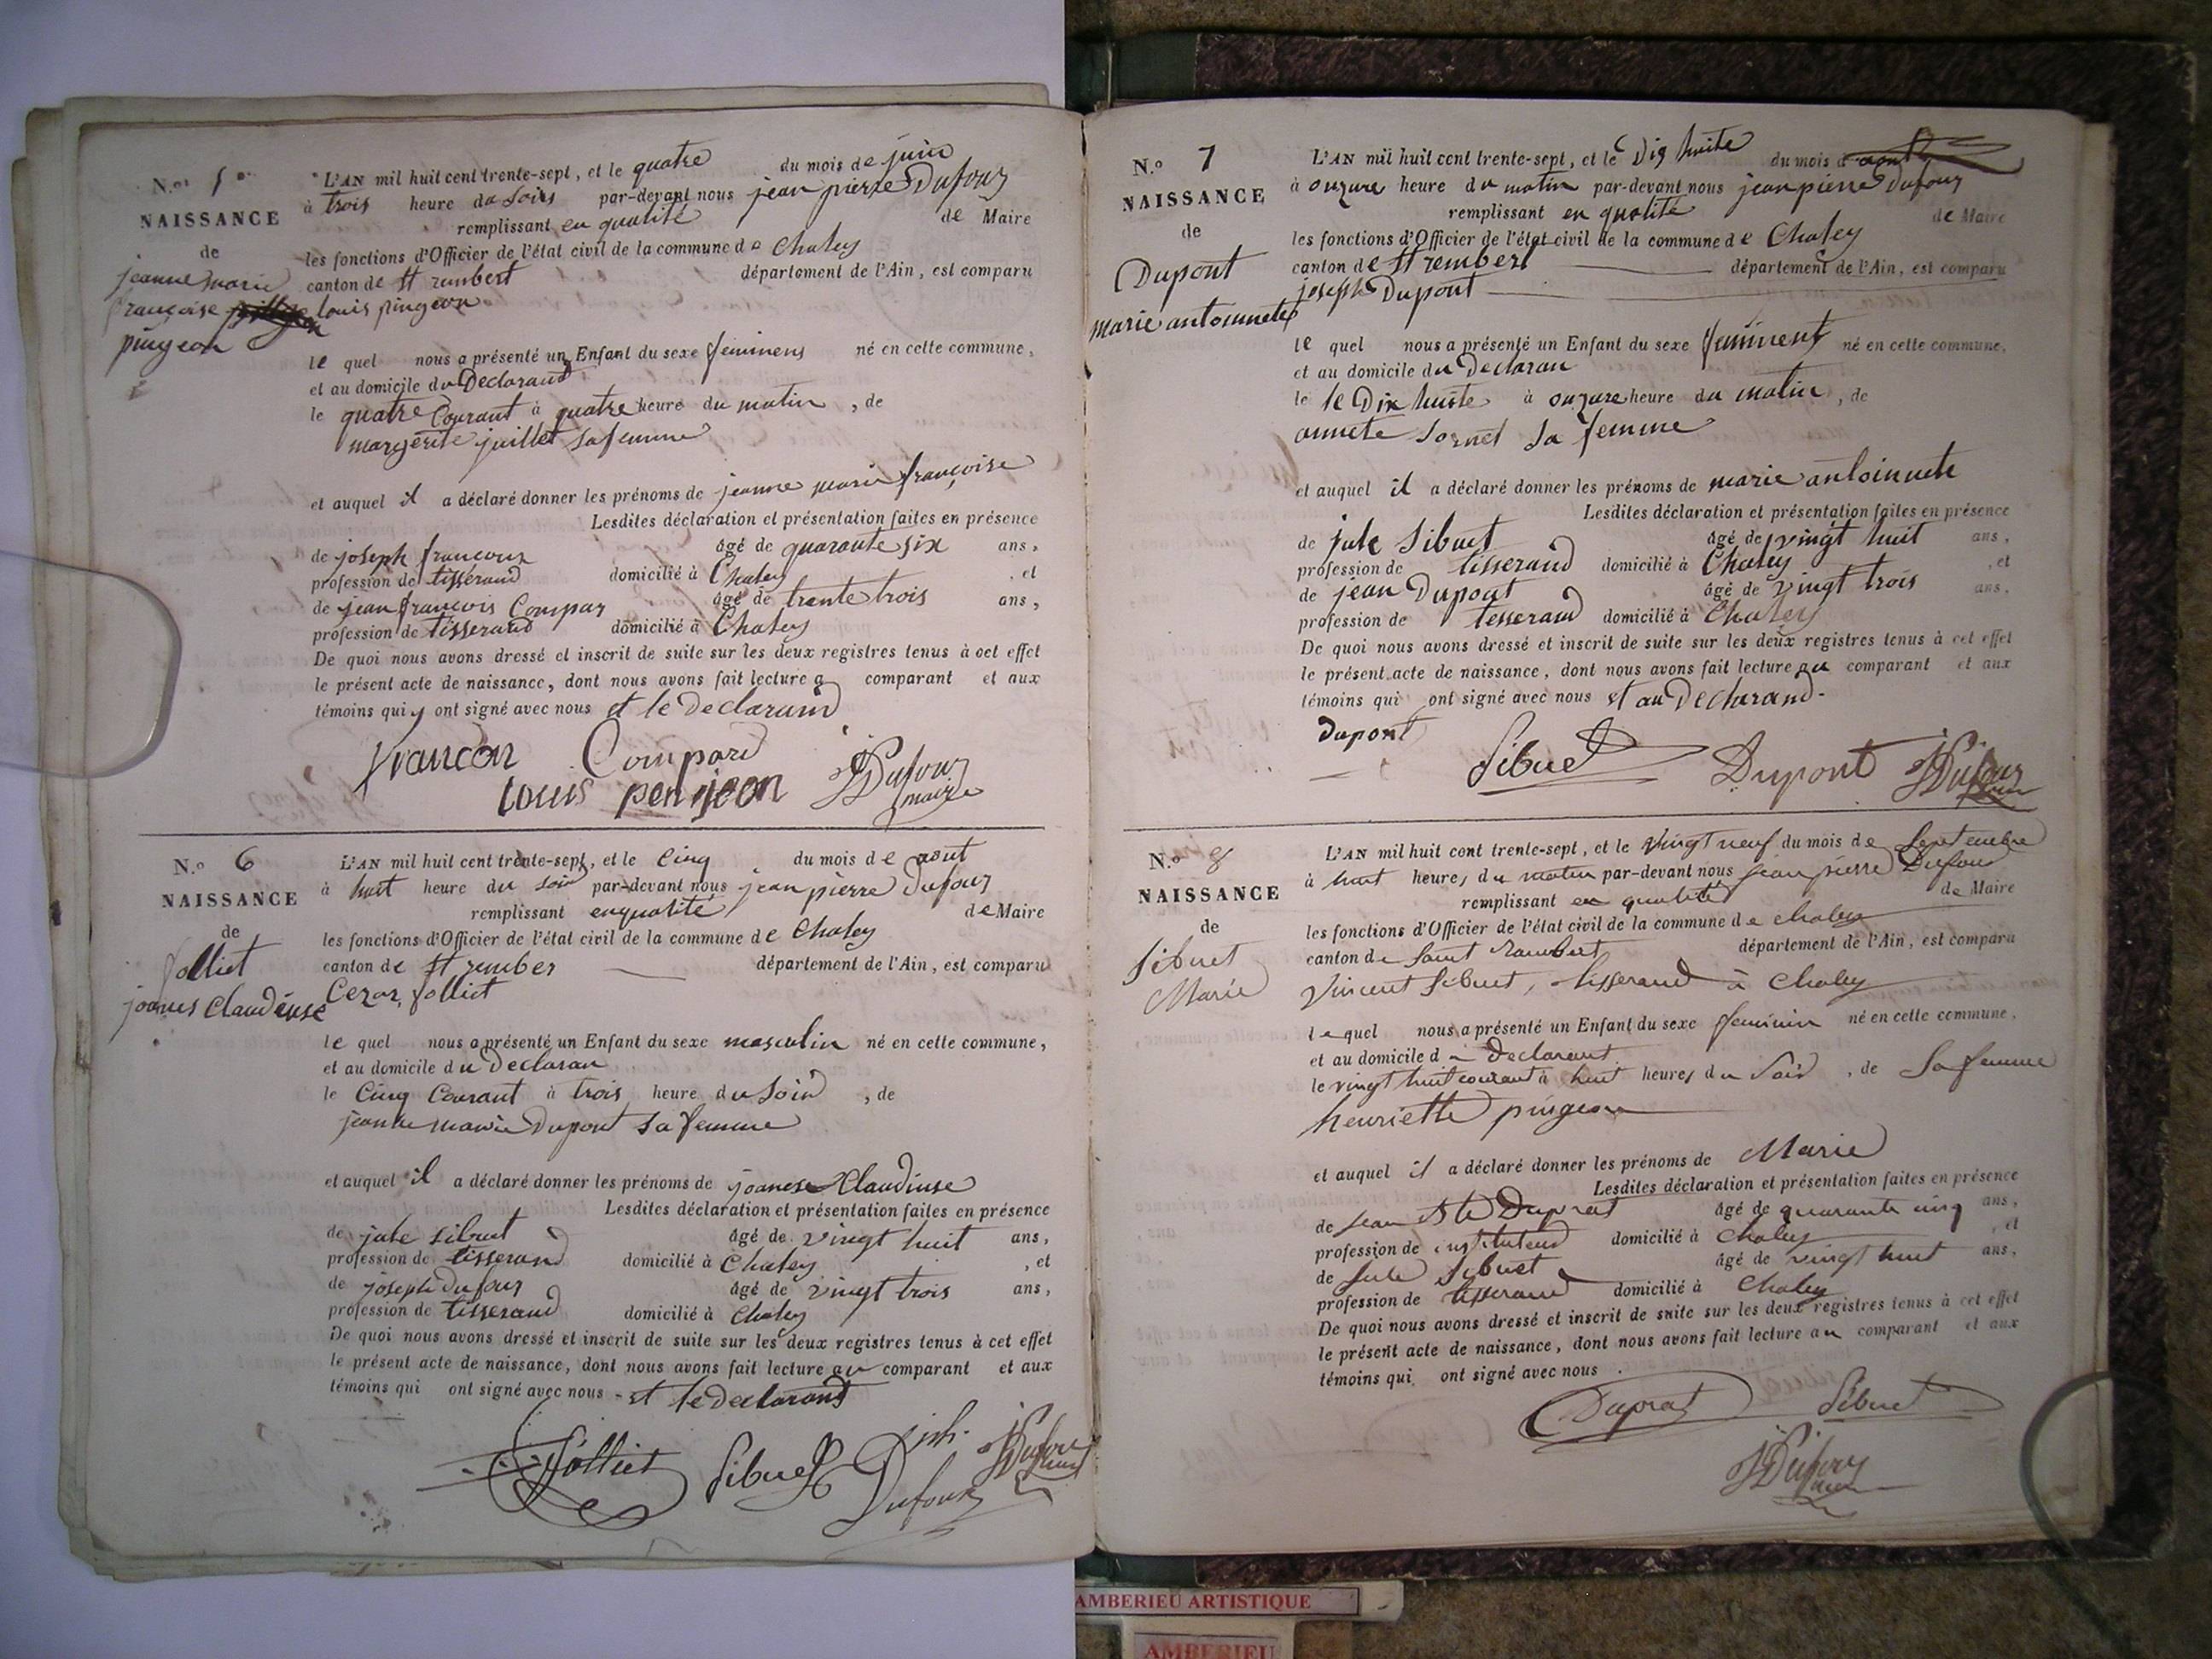 N.º 5
NAISSANCE
de
jeanne marie
françoise
pingeon
L'AN mil huit cent trente-sept, et le quatre du mois de juin
à trois heure du soir par-devant nous jean pierre Dufour
remplissant en qualité de Maire
les fonctions d'Officier de l'état civil de la commune de Chaley
canton de St rembert département de l'Ain, est comparu
louis pingeon
le quel nous a présenté un Enfant du sexe feminens né en cette commune,
et au domicile du Declarand
le quatre Courant à quatre heure du matin, de
margerite juillet sa femme
et auquel il a déclaré donner les prénoms de jeanne marie françoise
Lesdites déclaration et présentation faites en présence
de joseph françoun âgé de quarante six ans,
profession de tisserand domicilié à Chaley, et
de jean françois Compar âgé de trente trois ans,
profession de tisserand domicilié à Chaley
De quoi nous avons dressé et inscrit de suite sur les deux registres tenus à cet effet
le présent acte de naissance, dont nous avons fait lecture a comparant et aux
témoins qui y ont signé avec nous et le Declarand
francon Compard
Louis penjeon JPDufour
maire
N.º 6
NAISSANCE
de
folliet
joanes Claudiuse
L'AN mil huit cent trente-sept, et le Cinq du mois de aout
à huit heure du soir par-devant nous jean pierre Dufour
remplissant enqualité de Maire
les fonctions d'Officier de l'état civil de la commune de Chaley
canton de St rember département de l'Ain, est comparu
Cezar folliet
le quel nous a présenté un Enfant du sexe masculin né en cette commune,
et au domicile du Declaran
le Cinq Courant à trois heure du Soir, de
jeanne marie Dupont sa femme
et auquel il a déclaré donner les prénoms de joanese Claudiuse
Lesdites déclaration et présentation faites en présence
de jule sibuet âgé de vingt huit ans,
profession de tisserand domicilié à Chaley, et
de joseph dufour âgé de vingt trois ans,
profession de tisserand domicilié à Chaley
De quoi nous avons dressé et inscrit de suite sur les deux registres tenus à cet effet
le présent acte de naissance, dont nous avons fait lecture au comparant et aux
témoins qui ont signé avec nous - et le declarand
folliet Sibuet jph. Dufour JPDufour
N.º 7
NAISSANCE
de
Dupont
marie antoinnete
L'AN mil huit cent trente-sept, et le Dix huite du mois d aout
à onzure heure du matin par-devant nous jean pierre Dufour
remplissant en qualité de Maire
les fonctions d'Officier de l'état civil de la commune de Chaley
canton de St rembert département de l'Ain, est comparu
joseph Dupont
le quel nous a présenté un Enfant du sexe feminent né en cette commune,
et au domicile du Declaran
le le Dix huite à onzure heure du matin, de
annete sornet sa femme
et auquel il a déclaré donner les prénoms de marie antoinnete
Lesdites déclaration et présentation faites en présence
de jule Sibuet âgé de vingt huit ans,
profession de tisserand domicilié à Chaley, et
de jean Dupont âgé de vingt trois ans,
profession de tesserand domicilié à Chaley
De quoi nous avons dressé et inscrit de suite sur les deux registres tenus à cet effet
le présent acte de naissance, dont nous avons fait lecture au comparant et aux
témoins qui ont signé avec nous et au Declarand-
dupont Sibuet Dupont JPDufour
N.º 8
NAISSANCE
de
Sibuet
Marie
L'AN mil huit cent trente-sept, et le vingt neuf du mois de Septembre
à huit heures du matin par-devant nous jean pierre Dufour
remplissant en qualité de Maire
les fonctions d'Officier de l'état civil de la commune de chaley
canton de Saint Rambert département de l'Ain, est comparu
Vincent Sibuet, tisserand à Chaley
lequel nous a présenté un Enfant du sexe feminin né en cette commune,
et au domicile du Declarant
le vingt huit courant à huit heures du Soir, de Sa femme
henriette pingeon
et auquel il a déclaré donner les prénoms de Marie
Lesdites déclaration et présentation faites en présence
de Jean Bte Duprat âgé de quarante cinq ans,
profession de instituteur domicilié à Chaley, et
de Jule Sibuet âgé de vingt huit ans,
profession de tisserand domicilié à Chaley
De quoi nous avons dressé et inscrit de suite sur les deux registres tenus à cet effet
le présent acte de naissance, dont nous avons fait lecture au comparant et aux
témoins qui ont signé avec nous.
Duprat Sibuet
JPDufour
AMBERIEU ARTISTIQUE
AMBERIEU